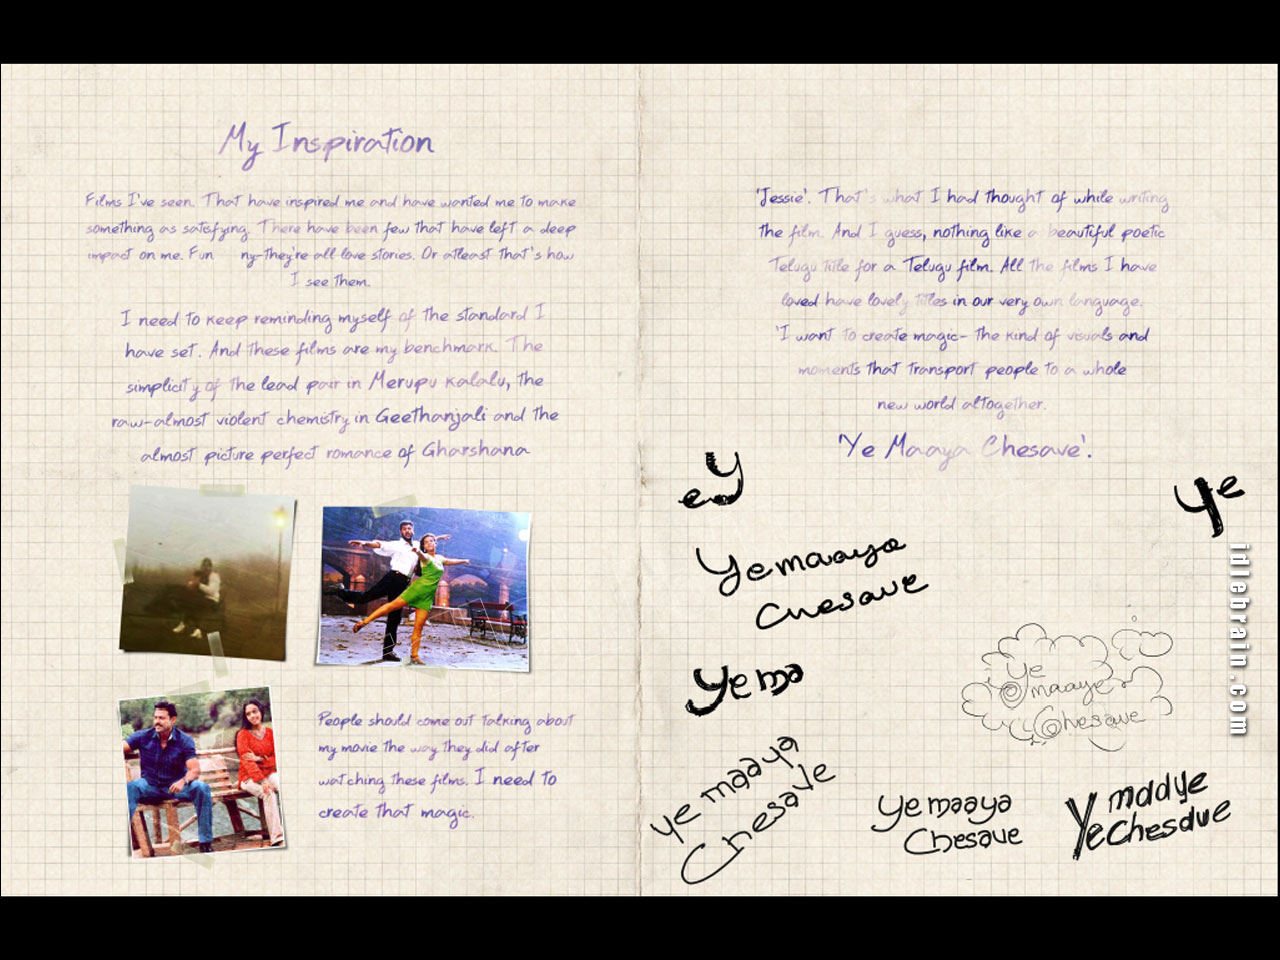 My Inspiration
Films I've seen. That have inspired me and have wanted me to make
something as satisfying. There have been few that have left a deep
impact on me. Fun ny-they're all love stories. Or atleast that's how
I see them.
I need to keep reminding myself of the standard I
have set. And these films are my benchmark. The
simplicity of the lead pair in Merupu Kalalu, the
raw-almost violent chemistry in Geethanjali and the
almost picture perfect romance of Gharshana
People should come out talking about
my movie the way they did after
watching these films. I need to
create that magic.
'Jessie'. That's what I had thought of while writing
the film. And I guess, nothing like a beautiful poetic
Telugu title for a Telugu film. All the films I have
loved have lovely titles in our very own language.
'I want to create magic- the kind of visuals and
moments that transport people to a whole
new world altogether.
'Ye Maaya Chesave'.
ey
ye
Yemaaya
Chesave
Yema
Ye
maaye
Chesave
ye maaya
Chesave
yemaaya
Chesave
maaye
Yechesave
idlebrain.com